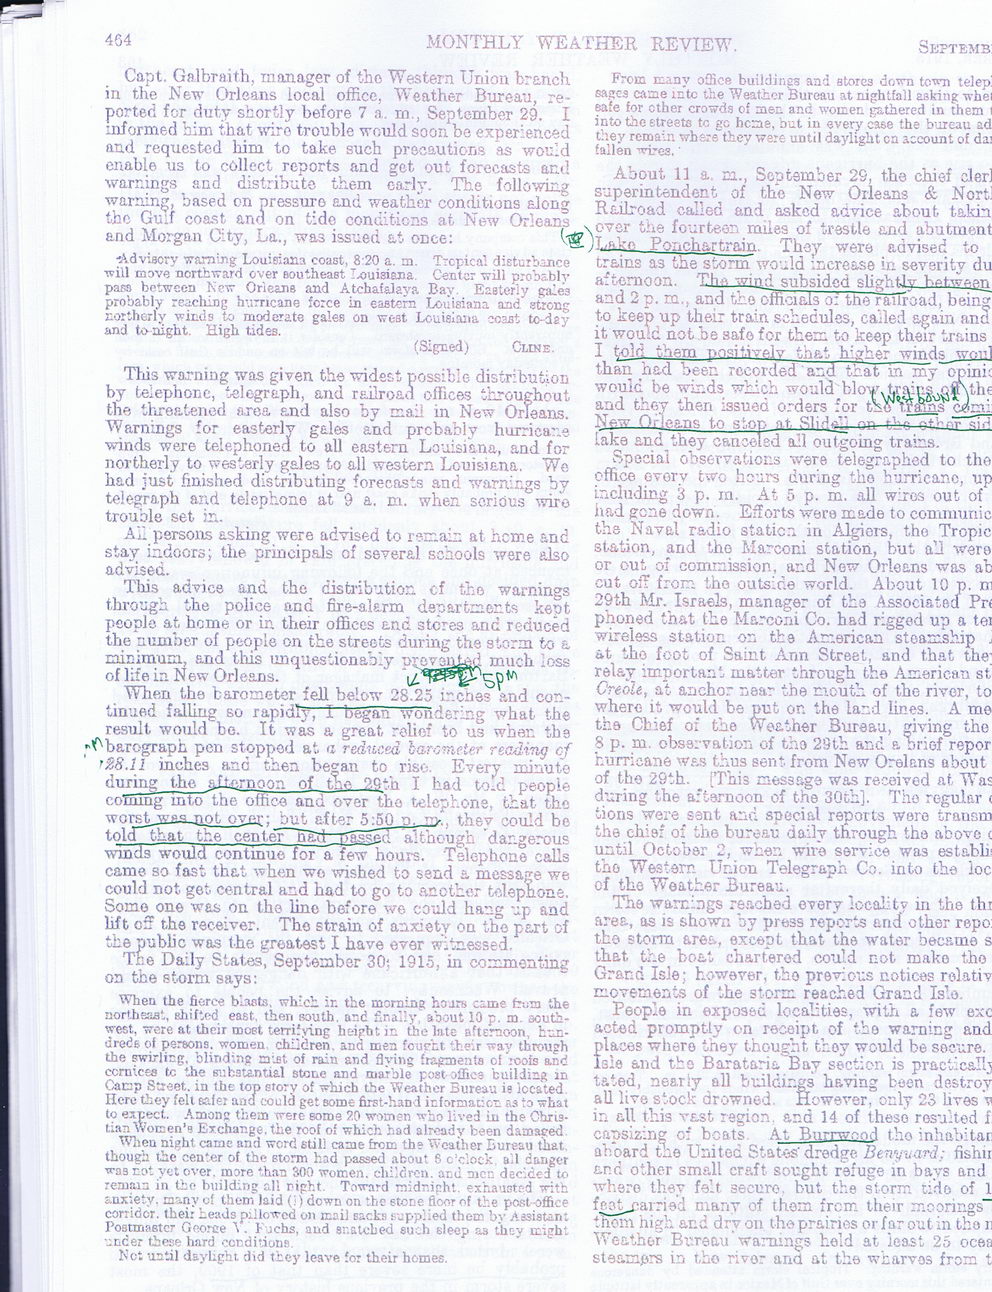 464
MONTHLY WEATHER REVIEW.
SEPTEMB
Capt. Galbraith, manager of the Western Union branch
in the New Orleans local office, Weather Bureau, re-
ported for duty shortly before 7 a. m., September 29. I
informed him that wire trouble would soon be experienced
and requested him to take such precautions as would
enable us to collect reports and get out forecasts and
warnings and distribute them early. The following
warning, based on pressure and weather conditions along
the Gulf coast and on tide conditions at New Orleans
and Morgan City, La., was issued at once:
Advisory warning Louisiana coast, 8:20 a. m. Tropical disturbance
will move northward over southeast Louisiana. Center will probably
pass between New Orleans and Atchafalaya Bay. Easterly gales
probably reaching hurricane force in eastern Louisiana and strong
northerly winds to moderate gales on west Louisiana coast to-day
and to-night. High tides.
(Signed) CLINE.
This warning was given the widest possible distribution
by telephone, telegraph, and railroad offices throughout
the threatened area and also by mail in New Orleans.
Warnings for easterly gales and probably hurricane
winds were telephoned to all eastern Louisiana, and for
northerly to westerly gales to all western Louisiana. We
had just finished distributing forecasts and warnings by
telegraph and telephone at 9 a. m. when serious wire
trouble set in.
All persons asking were advised to remain at home and
stay indoors; the principals of several schools were also
advised.
This advice and the distribution of the warnings
through the police and fire-alarm departments kept
people at home or in their offices and stores and reduced
the number of people on the streets during the storm to a
minimum, and this unquestionably prevented much loss
of life in New Orleans.
5pm
When the barometer fell below 28.25 inches and con-
tinued falling so rapidly, I began wondering what the
result would be. It was a great relief to us when the
barograph pen stopped at a reduced barometer reading of
28.11 inches and then began to rise. Every minute
during the afternoon of the 29th I had told people
coming into the office and over the telephone, that the
worst was not over; but after 5:50 p. m., they could be
told that the center had passed although dangerous
winds would continue for a few hours. Telephone calls
came so fast that when we wished to send a message we
could not get central and had to go to another telephone.
Some one was on the line before we could hang up and
lift off the receiver. The strain of anxiety on the part of
the public was the greatest I have ever witnessed.
The Daily States, September 30, 1915, in commenting
on the storm says:
When the fierce blasts, which in the morning hours came from the
northeast, shifted east, then south, and finally, about 10 p. m. south-
west, were at their most terrifying height in the late afternoon, hun-
dreds of persons, women, children, and men fought their way through
the swirling, blinding mist of rain and flying fragments of roofs and
cornices to the substantial stone and marble post-office building in
Camp Street, in the top story of which the Weather Bureau is located.
Here they felt safer and could get some first-hand information as to what
to expect. Among them were some 20 women who lived in the Chris-
tian Women's Exchange, the roof of which had already been damaged.
When night came and word still came from the Weather Bureau that,
though the center of the storm had passed about 6 o'clock, all danger
was not yet over, more than 300 women, children, and men decided to
remain in the building all night. Toward midnight, exhausted with
anxiety, many of them laid (!) down on the stone floor of the post-office
corridor, their heads pillowed on mail sacks supplied them by Assistant
Postmaster George V. Fuchs, and snatched such sleep as they might
under these hard conditions.
Not until daylight did they leave for their homes.
From many office buildings and stores down town telep
sages came into the Weather Bureau at nightfall asking whe
safe for other crowds of men and women gathered in them t
into the streets to go home, but in every case the bureau ad
they remain where they were until daylight on account of da
fallen wires.
About 11 a. m., September 29, the chief clerk
superintendent of the New Orleans & North
Railroad called and asked advice about takin
over the fourteen miles of trestle and abutment
Lake Ponchartrain. They were advised to
trains as the storm would increase in severity du
afternoon. The wind subsided slightly between
and 2 p. m., and the officials of the railroad, being
to keep up their train schedules, called again and
it would not be safe for them to keep their trains
I told them positively that higher winds woul
than had been recorded and that in my opinio
would be winds which would blow trains off the
(Westbound)
and they then issued orders for the trains comi
New Orleans to stop at Slidell on the other sid
lake and they canceled all outgoing trains.
Special observations were telegraphed to the
office every two hours during the hurricane, up
including 3 p. m. At 5 p. m. all wires out of
had gone down. Efforts were made to communic
the Naval radio station in Algiers, the Tropic
station, and the Marconi station, but all were
or out of commission, and New Orleans was ab
cut off from the outside world. About 10 p. m
29th Mr. Israels, manager of the Associated Pre
phoned that the Marconi Co. had rigged up a te
wireless station on the American steamship
at the foot of Saint Ann Street, and that they
relay important matter through the American st
Creole, at anchor near the mouth of the river, to
where it would be put on the land lines. A me
the Chief of the Weather Bureau, giving the
8 p. m. observation of the 29th and a brief repor
hurricane was thus sent from New Orelans about
of the 29th. [This message was received at Was
during the afternoon of the 30th]. The regular o
tions were sent and special reports were transm
the chief of the bureau daily through the above c
until October 2, when wire service was establis
the Western Union Telegraph Co. into the loc
of the Weather Bureau.
The warnings reached every locality in the thr
area, as is shown by press reports and other repo
the storm area, except that the water became s
that the boat chartered could not make the
Grand Isle; however, the previous notices relativ
movements of the storm reached Grand Isle.
People in exposed localities, with a few exc
acted promptly on receipt of the warning and
places where they thought they would be secure.
Isle and the Barataria Bay section is practically
tated, nearly all buildings having been destroy
all live stock drowned. However, only 23 lives w
in all this vast region, and 14 of these resulted f
capsizing of boats. At Burrwood the inhabitan
aboard the United States dredge Benyuard; fishin
and other small craft sought refuge in bays and
where they felt secure, but the storm tide of 1
feet carried many of them from their moorings
them high and dry on the prairies or far out in the m
Weather Bureau warnings held at least 25 ocea
steamers in the river and at the wharves from t